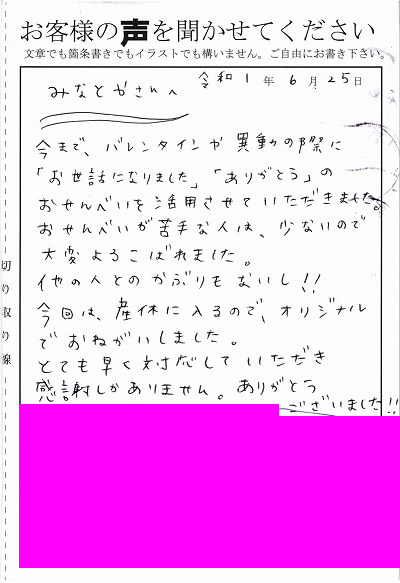 お客様の声を聞かせてください
文章でも箇条書きでもイラストでも構いません。ご自由にお書き下さい。
令和1年6月25日
みなとやさんへ
今まで、バレンタインや異動の際に
「お世話になりました」「ありがとう」の
おせんべいを活用させていただきました。
おせんべいが苦手な人は、少ないので
大変よろこばれました。
他の人とのかぶりもないし!!
今回は、産休に入るので、オリジナル
でおねがいしました。
とても早く対応していただき
感謝しかありません。ありがとう
ございました!!
切り取り線